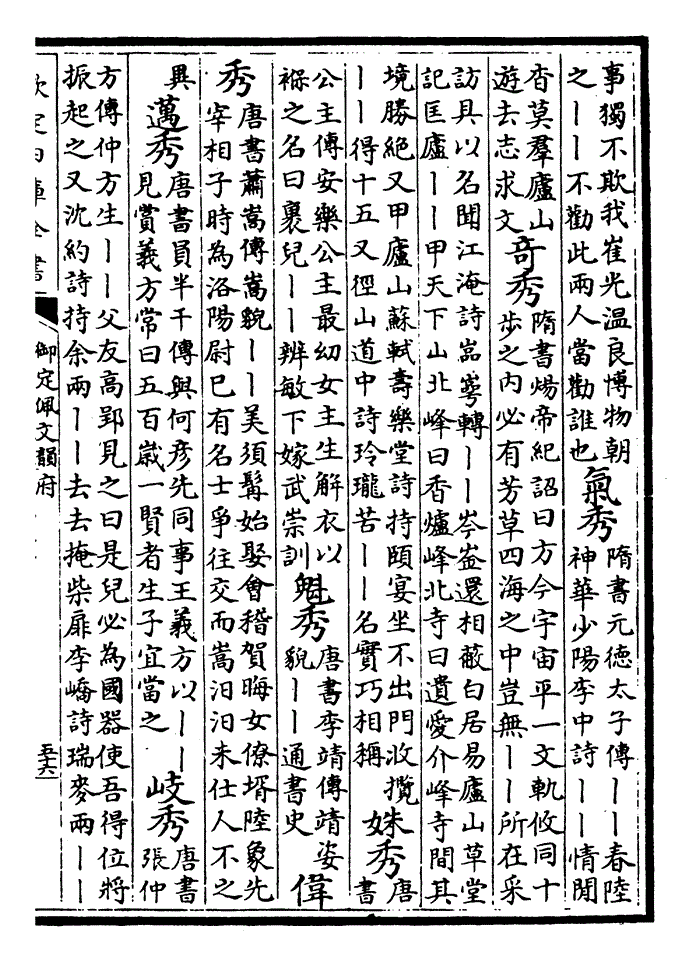 事獨不欺我崔光温良博物朝
之——不勸此兩人當勸誰也
氣秀
隋書元德太子傳——春陸
神華少陽李中詩——情閒
杳莫羣廬山
遊去志求文
奇秀
隋書煬帝紀詔曰方今宇宙平一文軌攸同十
步之内必有芳草四海之中豈無——所在采
訪具以名聞江淹詩嵓崿轉——岑崟還相蔽白居易廬山草堂
記匡廬——甲天下山北峰曰香爐峰北寺曰遺愛介峰寺間其
境勝絶又甲廬山蘇軾壽樂堂詩持頤宴坐不出門收攬
——得十五又徑山道中詩玲瓏苦——名實巧相稱
姝秀
唐
書
公主傳安樂公主最幼女主生解衣以
褓之名曰裹兒——辨敏下嫁武崇訓
魁秀
唐書李靖傳靖姿
貌——通書史
偉
秀
唐書蕭嵩傳嵩貌——美須髯始娶會稽賀晦女僚壻陸象先
宰相子時為洛陽尉已有名士爭往交而嵩汨汨未仕人不之
異
邁秀
唐書員半千傳與何彦先同事王義方以——
見賞義方常曰五百嵗一賢者生子宜當之
岐秀
唐書
張仲
方傳仲方生——父友高郢見之曰是兒必為國器使吾得位將
振起之又沈約詩持余兩——去去掩柴扉李嶠詩瑞麥兩——
欽定四庫全書
御定佩文韻府
五十六